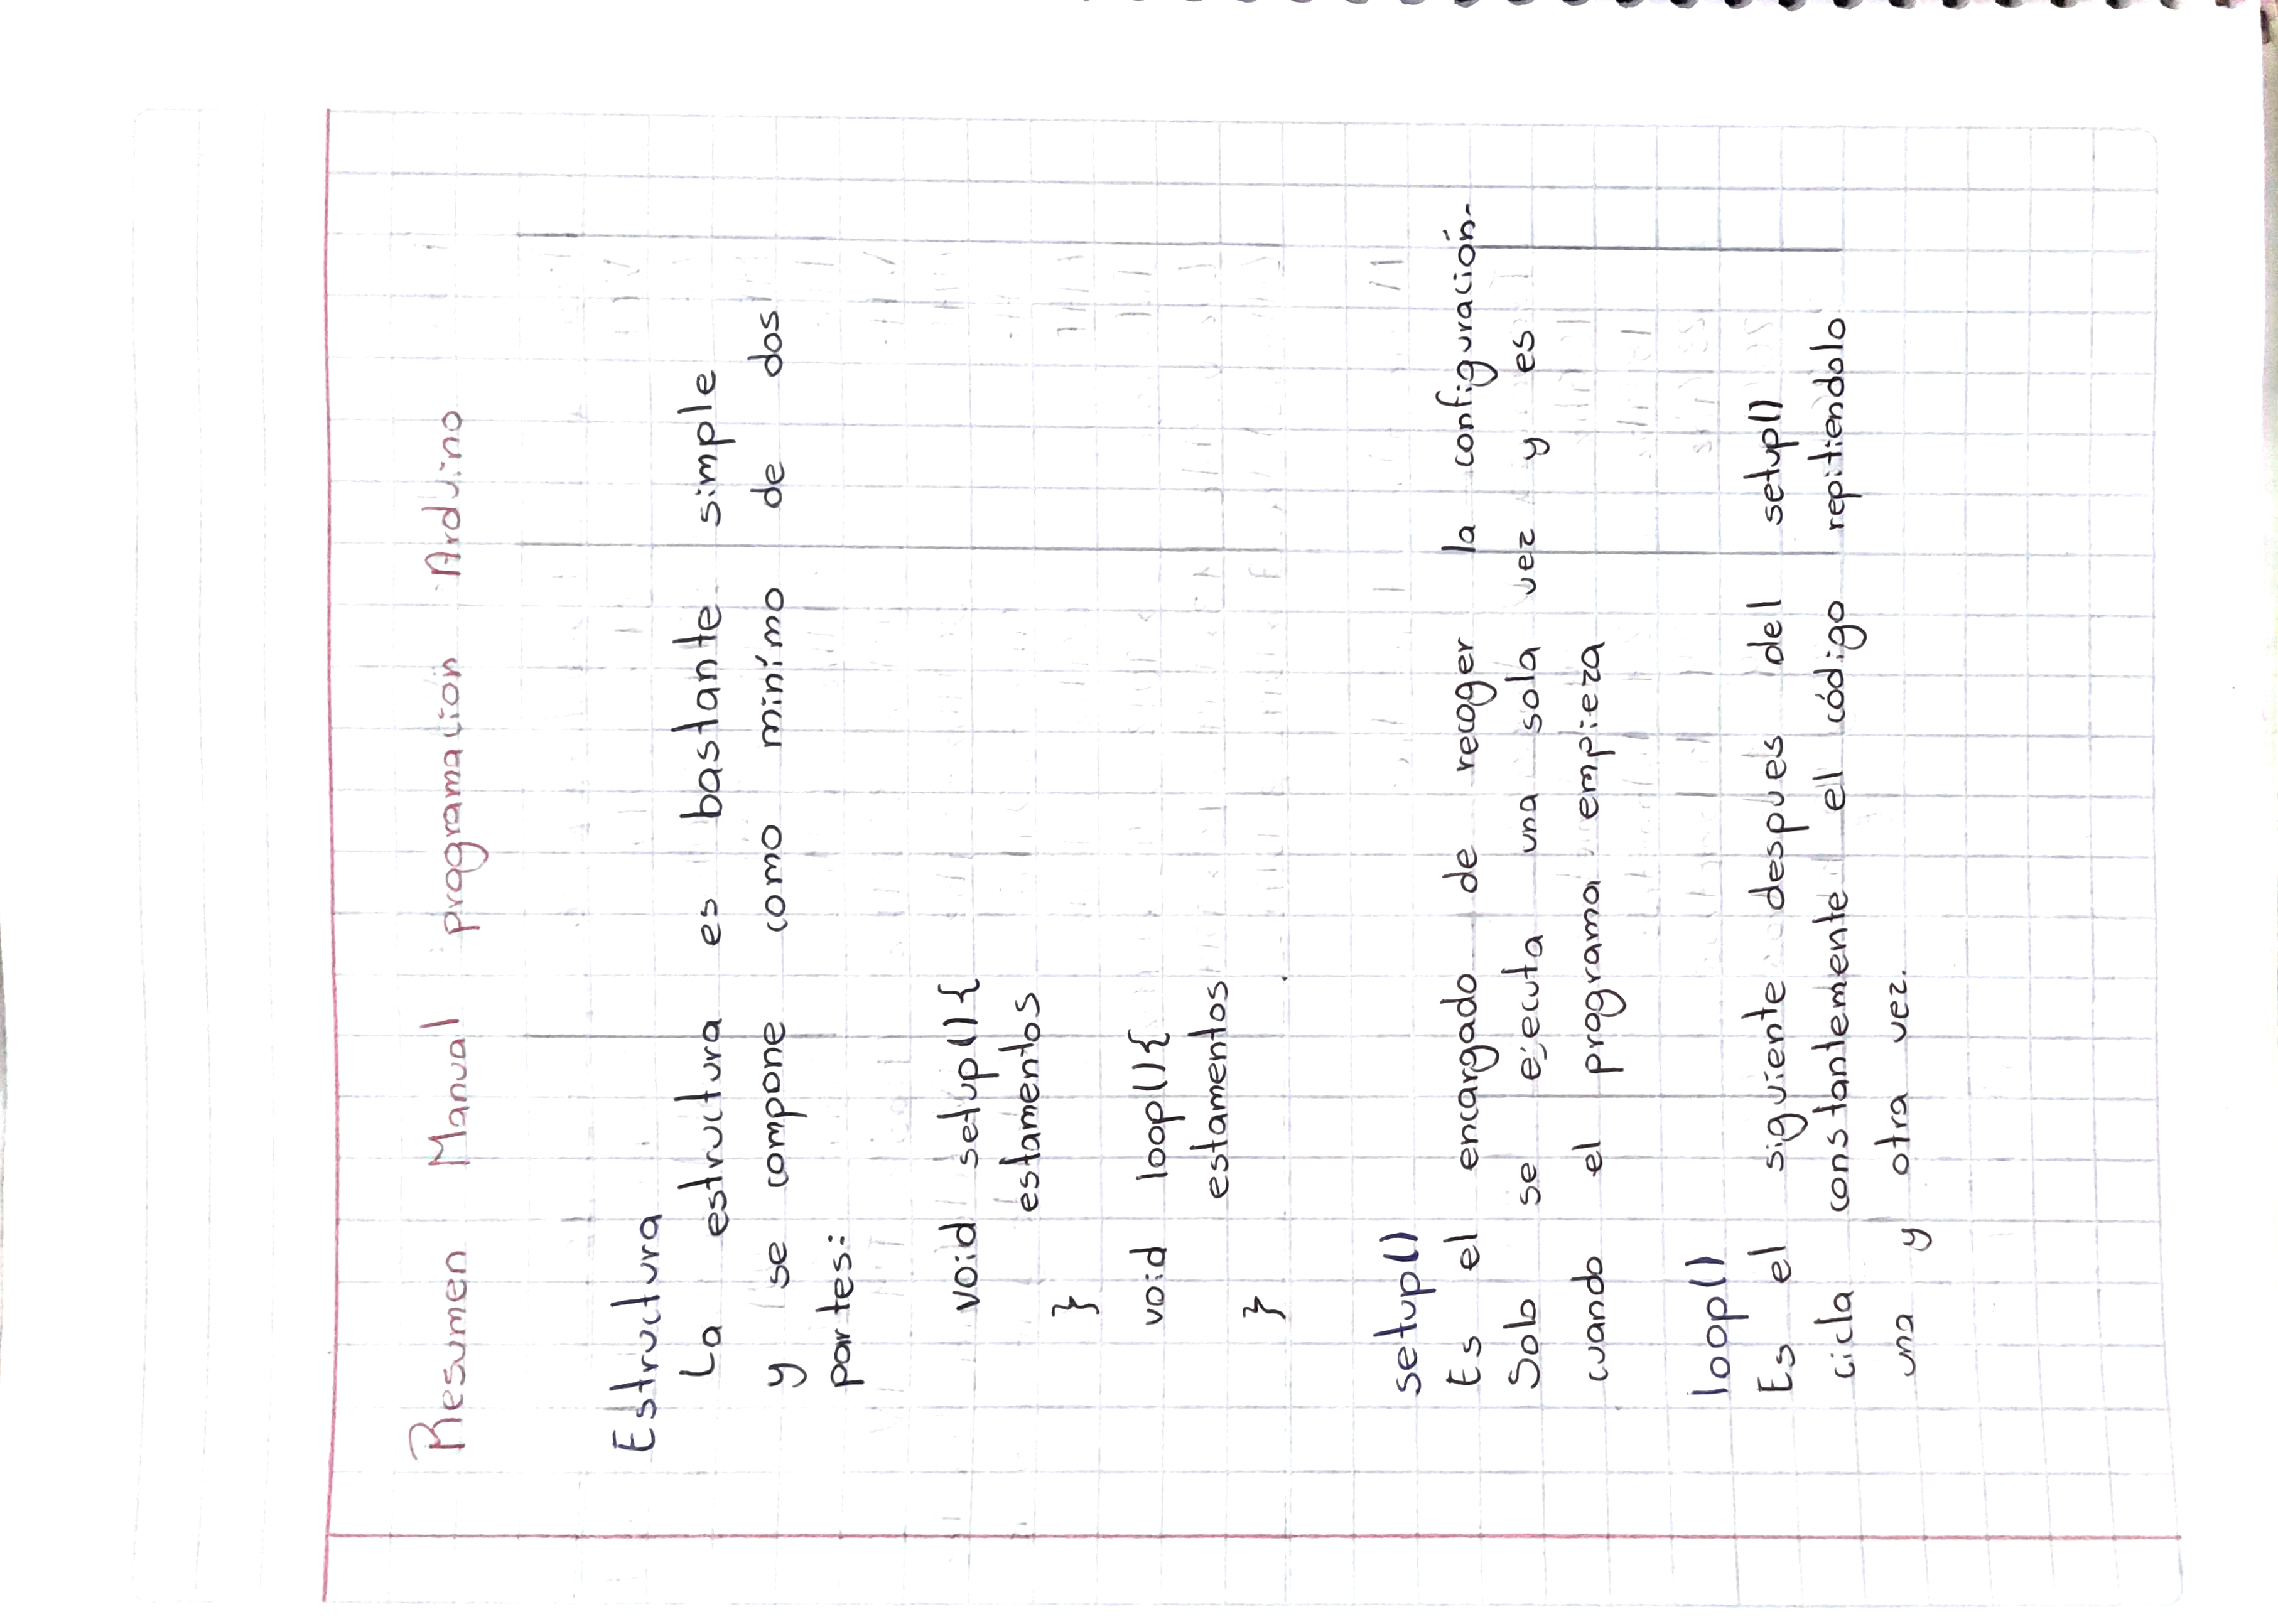 Resumen Manual programación Arduino
Estructura
La estructura es bastante simple
y se compone como minímo de dos
partes:
void setup(){
estamentos
}
void loop(){
estamentos
}
setup()
Es el encargado de recoger la configuración.
Solo se ejecuta una sola vez y es
cuando el programa empieza
loop()
Es el siguiente despues del setup()
cicla constantemente el código repitiendolo
una y otra vez.